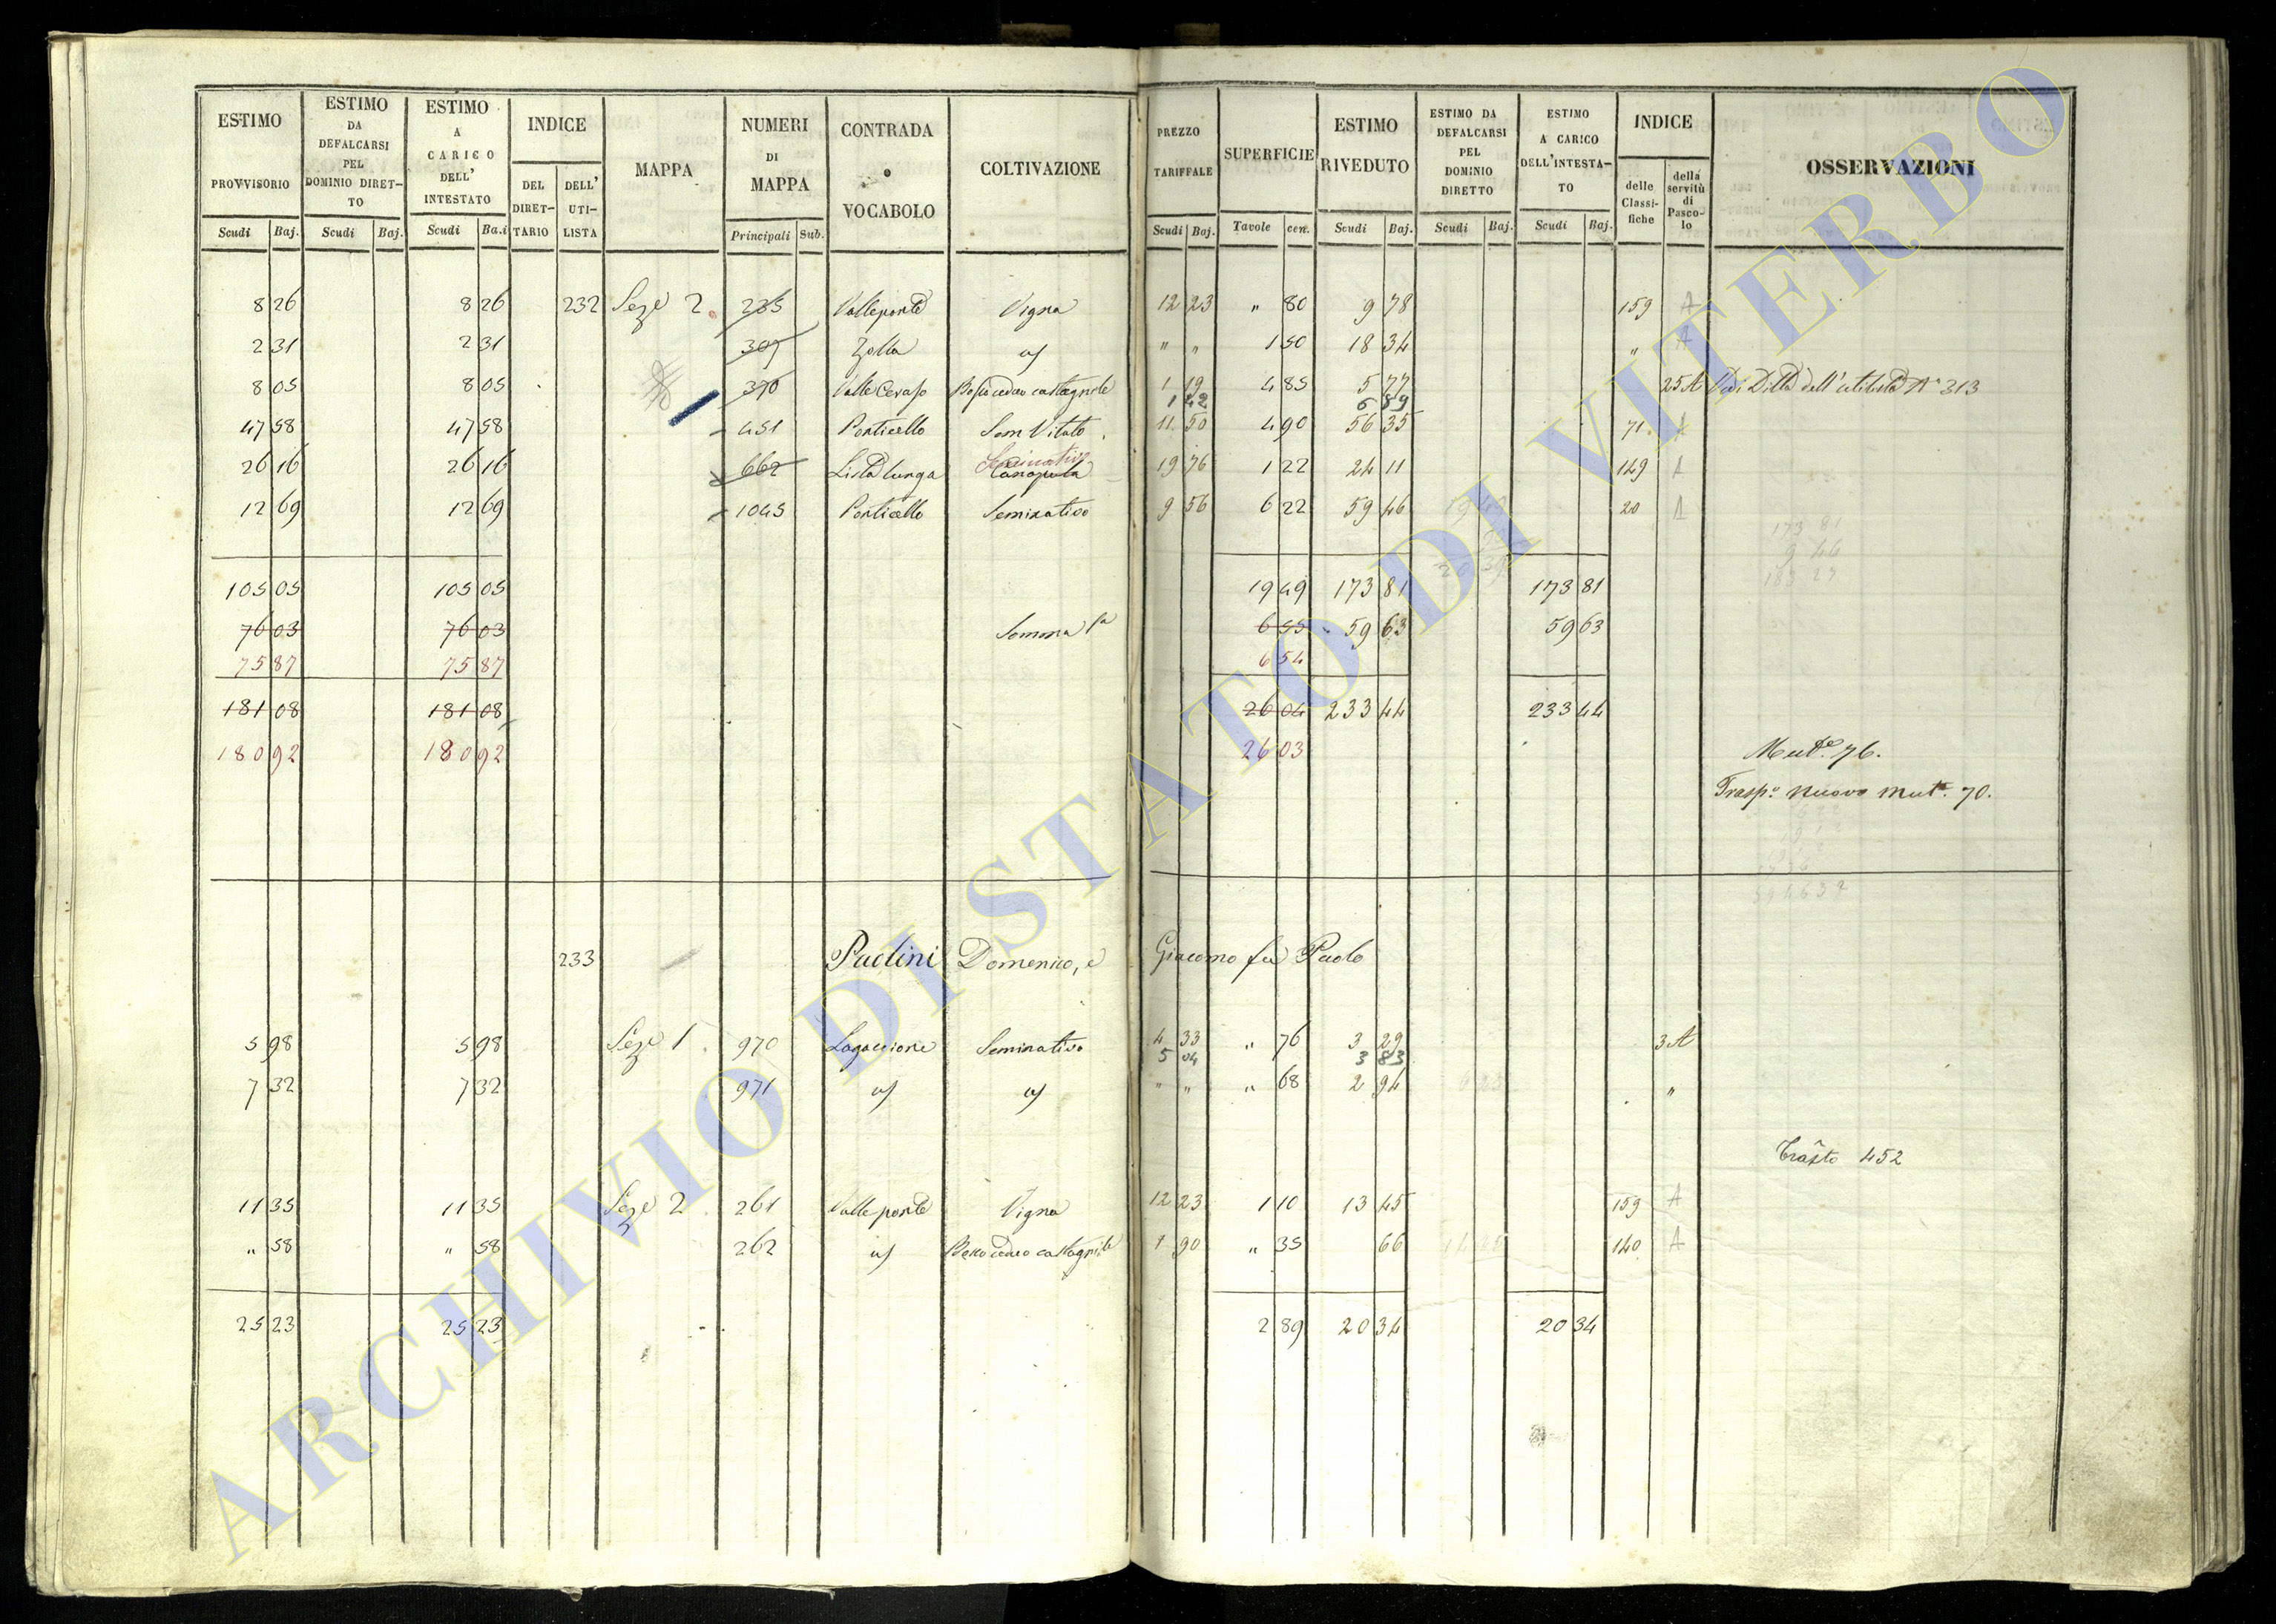 ESTIMO PROVVISORIO | ESTIMO DA DEFALCARSI PEL DOMINIO DIRET-TO | ESTIMO A CARICO DELL' INTESTATO | INDICE | MAPPA | NUMERI DI MAPPA | CONTRADA o VOCABOLO | COLTIVAZIONE | PREZZO TARIFFALE | SUPERFICIE | ESTIMO RIVEDUTO | ESTIMO DA DEFALCARSI PEL DOMINIO DIRETTO | ESTIMO A CARICO DELL'INTESTA-TO | INDICE | OSSERVAZIONI
DEL DIRET-TARIO | DELL' UTI-LISTA | delle Classi-fiche | della servitù di Pasco-lo
Scudi | Baj. | Scudi | Baj. | Scudi | Ba.i | Principali | Sub. | Scudi | Baj. | Tavole | cen. | Scudi | Baj. | Scudi | Baj. | Scudi | Baj.
8 26 | 8 26 | 232 | Seze 2 | 235 | Valleponte | Vigna | 12 23 | " 80 | 9 78 | 159 | A
2 31 | 2 31 | 307 | Zolla | " " | 1 50 | 18 34 | " | A
8 05 | 8 05 | 370 | Valle Ceraso | Bosco ceduo castagnile | 1 19 | 4 85 | 5 77 | 25 A | Vedi Ditta dell'utilista N° 313
1 42 | 6 89
47 58 | 47 58 | 451 | Ponticello | Sem Vitato | 11 50 | 4 90 | 56 35 | 71
Seminativo
26 16 | 26 16 | 662 | Lista lunga | Canapula | 19 76 | 1 22 | 24 11 | 149 | A
12 69 | 12 69 | 1045 | Ponticello | Seminativo | 9 56 | 6 22 | 59 46 | 20 | A
105 05 | 105 05 | 19 49 | 173 81 | 173 81
76 03 | 76 03 | Somma | 6 55 | 59 63 | 59 63
75 87 | 75 87 | 6 54
181 08 | 181 08 | 26 04 | 233 44 | 233 44
180 92 | 180 92 | 26 03 | Mut.e 76.
Trasp.o nuovo mut.e 70.
233 | Paolini Domenico, e Giacomo fu Paolo
5 98 | 5 98 | Seze 1 | 970 | Lagaccione | Seminativo | 4 33 | " 76 | 3 29 | 3 A
5 04 | 3 83
7 32 | 7 32 | 971 | " " | " 68 | 2 94 | "
Trasto 452
11 35 | 11 35 | Seze 2 | 261 | Valleponte | Vigna | 12 23 | 1 10 | 13 45 | 159 | A
" 58 | " 58 | 262 | Bosco ceduo castagnile | 1 90 | " 35 | 66 | 140 | A
25 23 | 25 23 | 2 89 | 20 34 | 20 34
ARCHIVIO DI STATO DI VITERBO